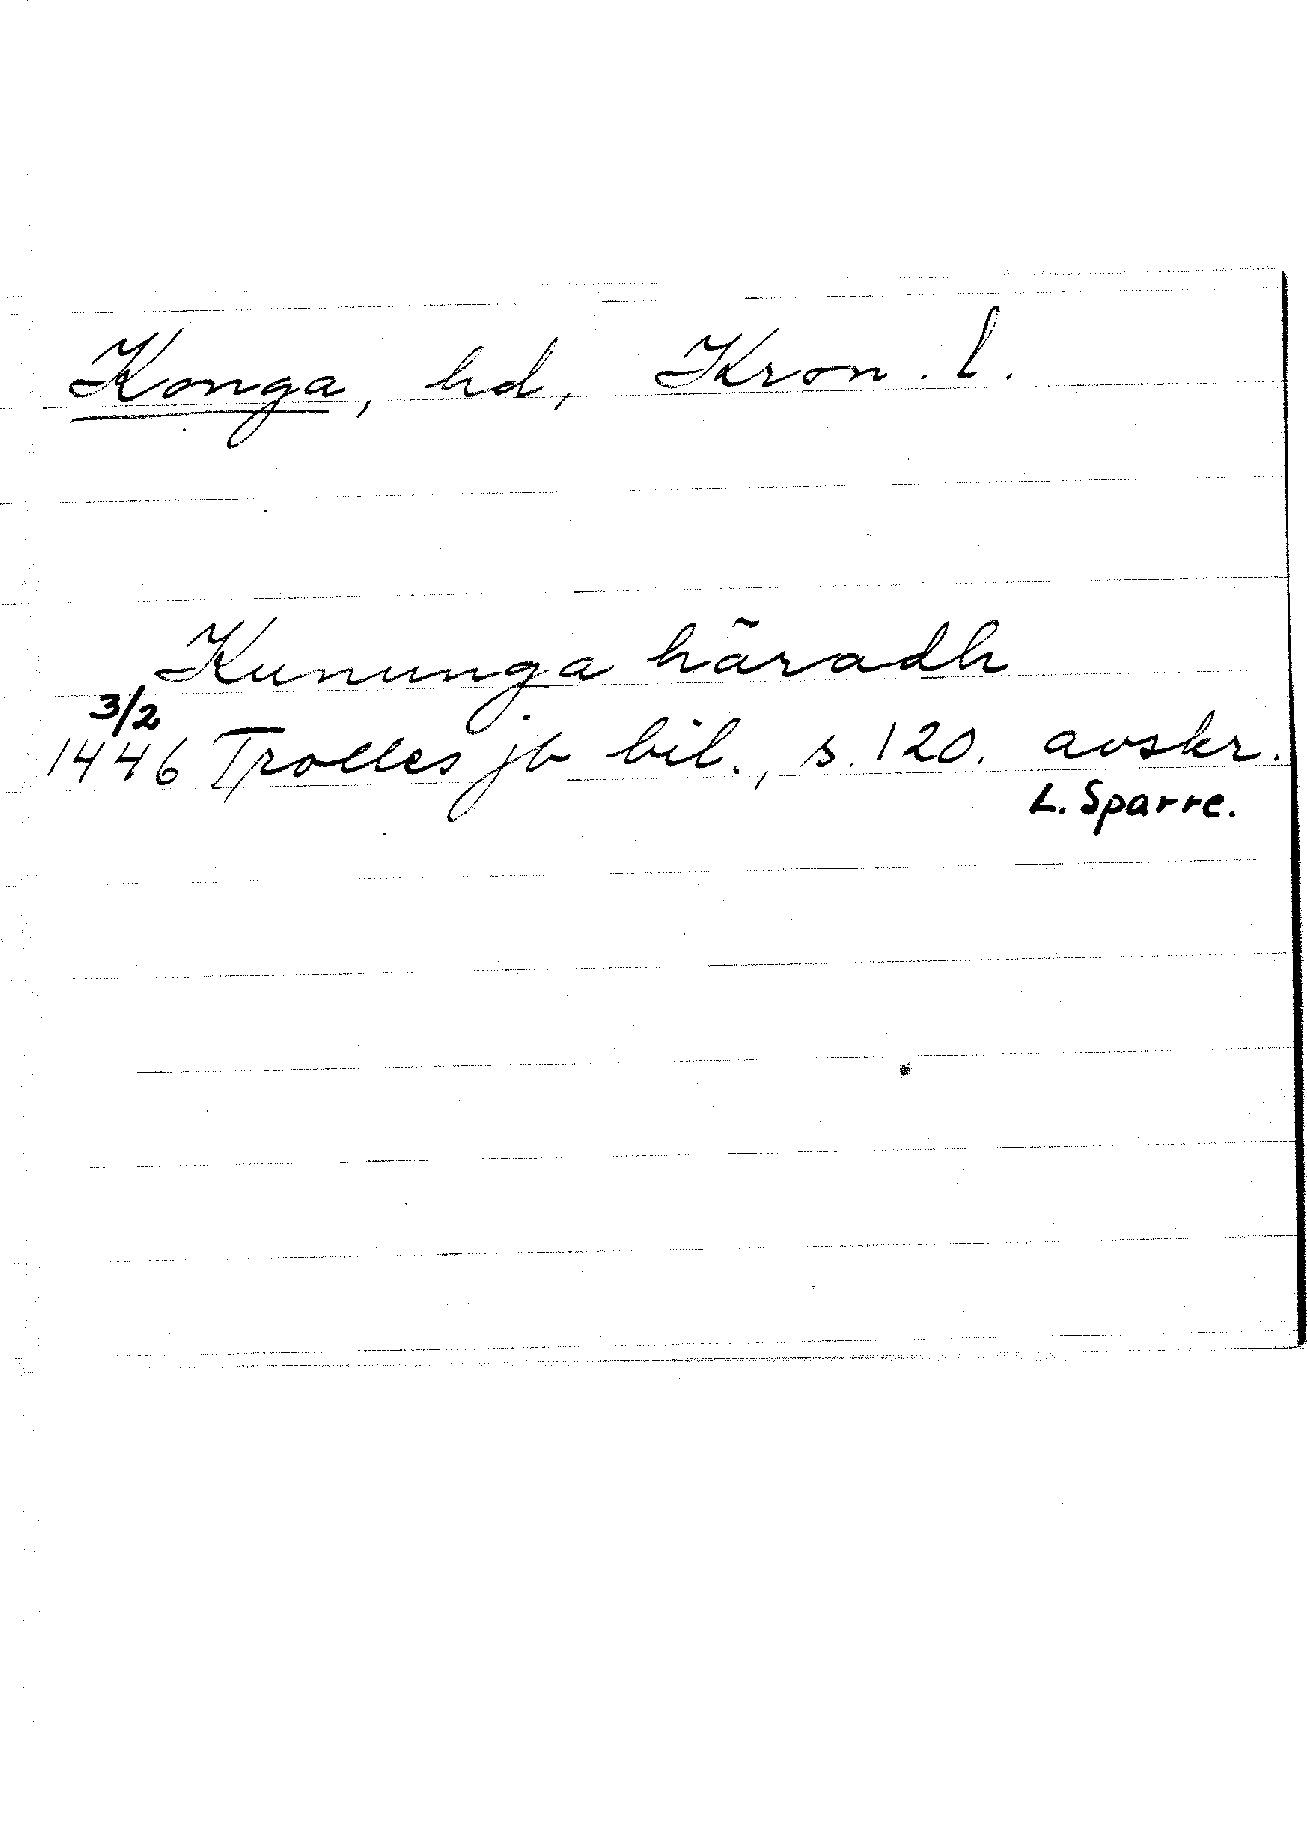 Konga, hd, Kron. l.
Kununga häradh
3/2
1446 Trolles jb bil., s. 120. avskr.
L. Sparre.